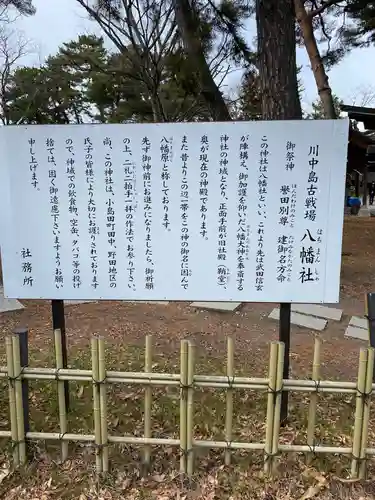 川中島古戦場 八幡社
はちまんしゃ
御祭神 誉田別尊 建御名方命
ほむたわけのみこと たけみなかたのみこと
この神社は八幡社といい、これより先は武田信玄
が陣構え、御加護を仰いだ八幡大神を奉斎する
神社の神域となり、正面手前が旧社殿(鞘堂)、
奥が現在の神殿であります。
また昔よりこの辺一帯をこの神の御名に因んで
八幡原と称しております。
先ず御神前にお進みになりましたら、御祈願
の上、二礼二拍手一礼の作法でお参り下さい。
尚、この神社は、小島田町田中、野田地区の
氏子の皆様により大切にお護りされております
ので、神域での飲食物、空缶、タバコ等の投げ
捨ては、固く御遠慮下さいますようお願い
申し上げます。
社務所